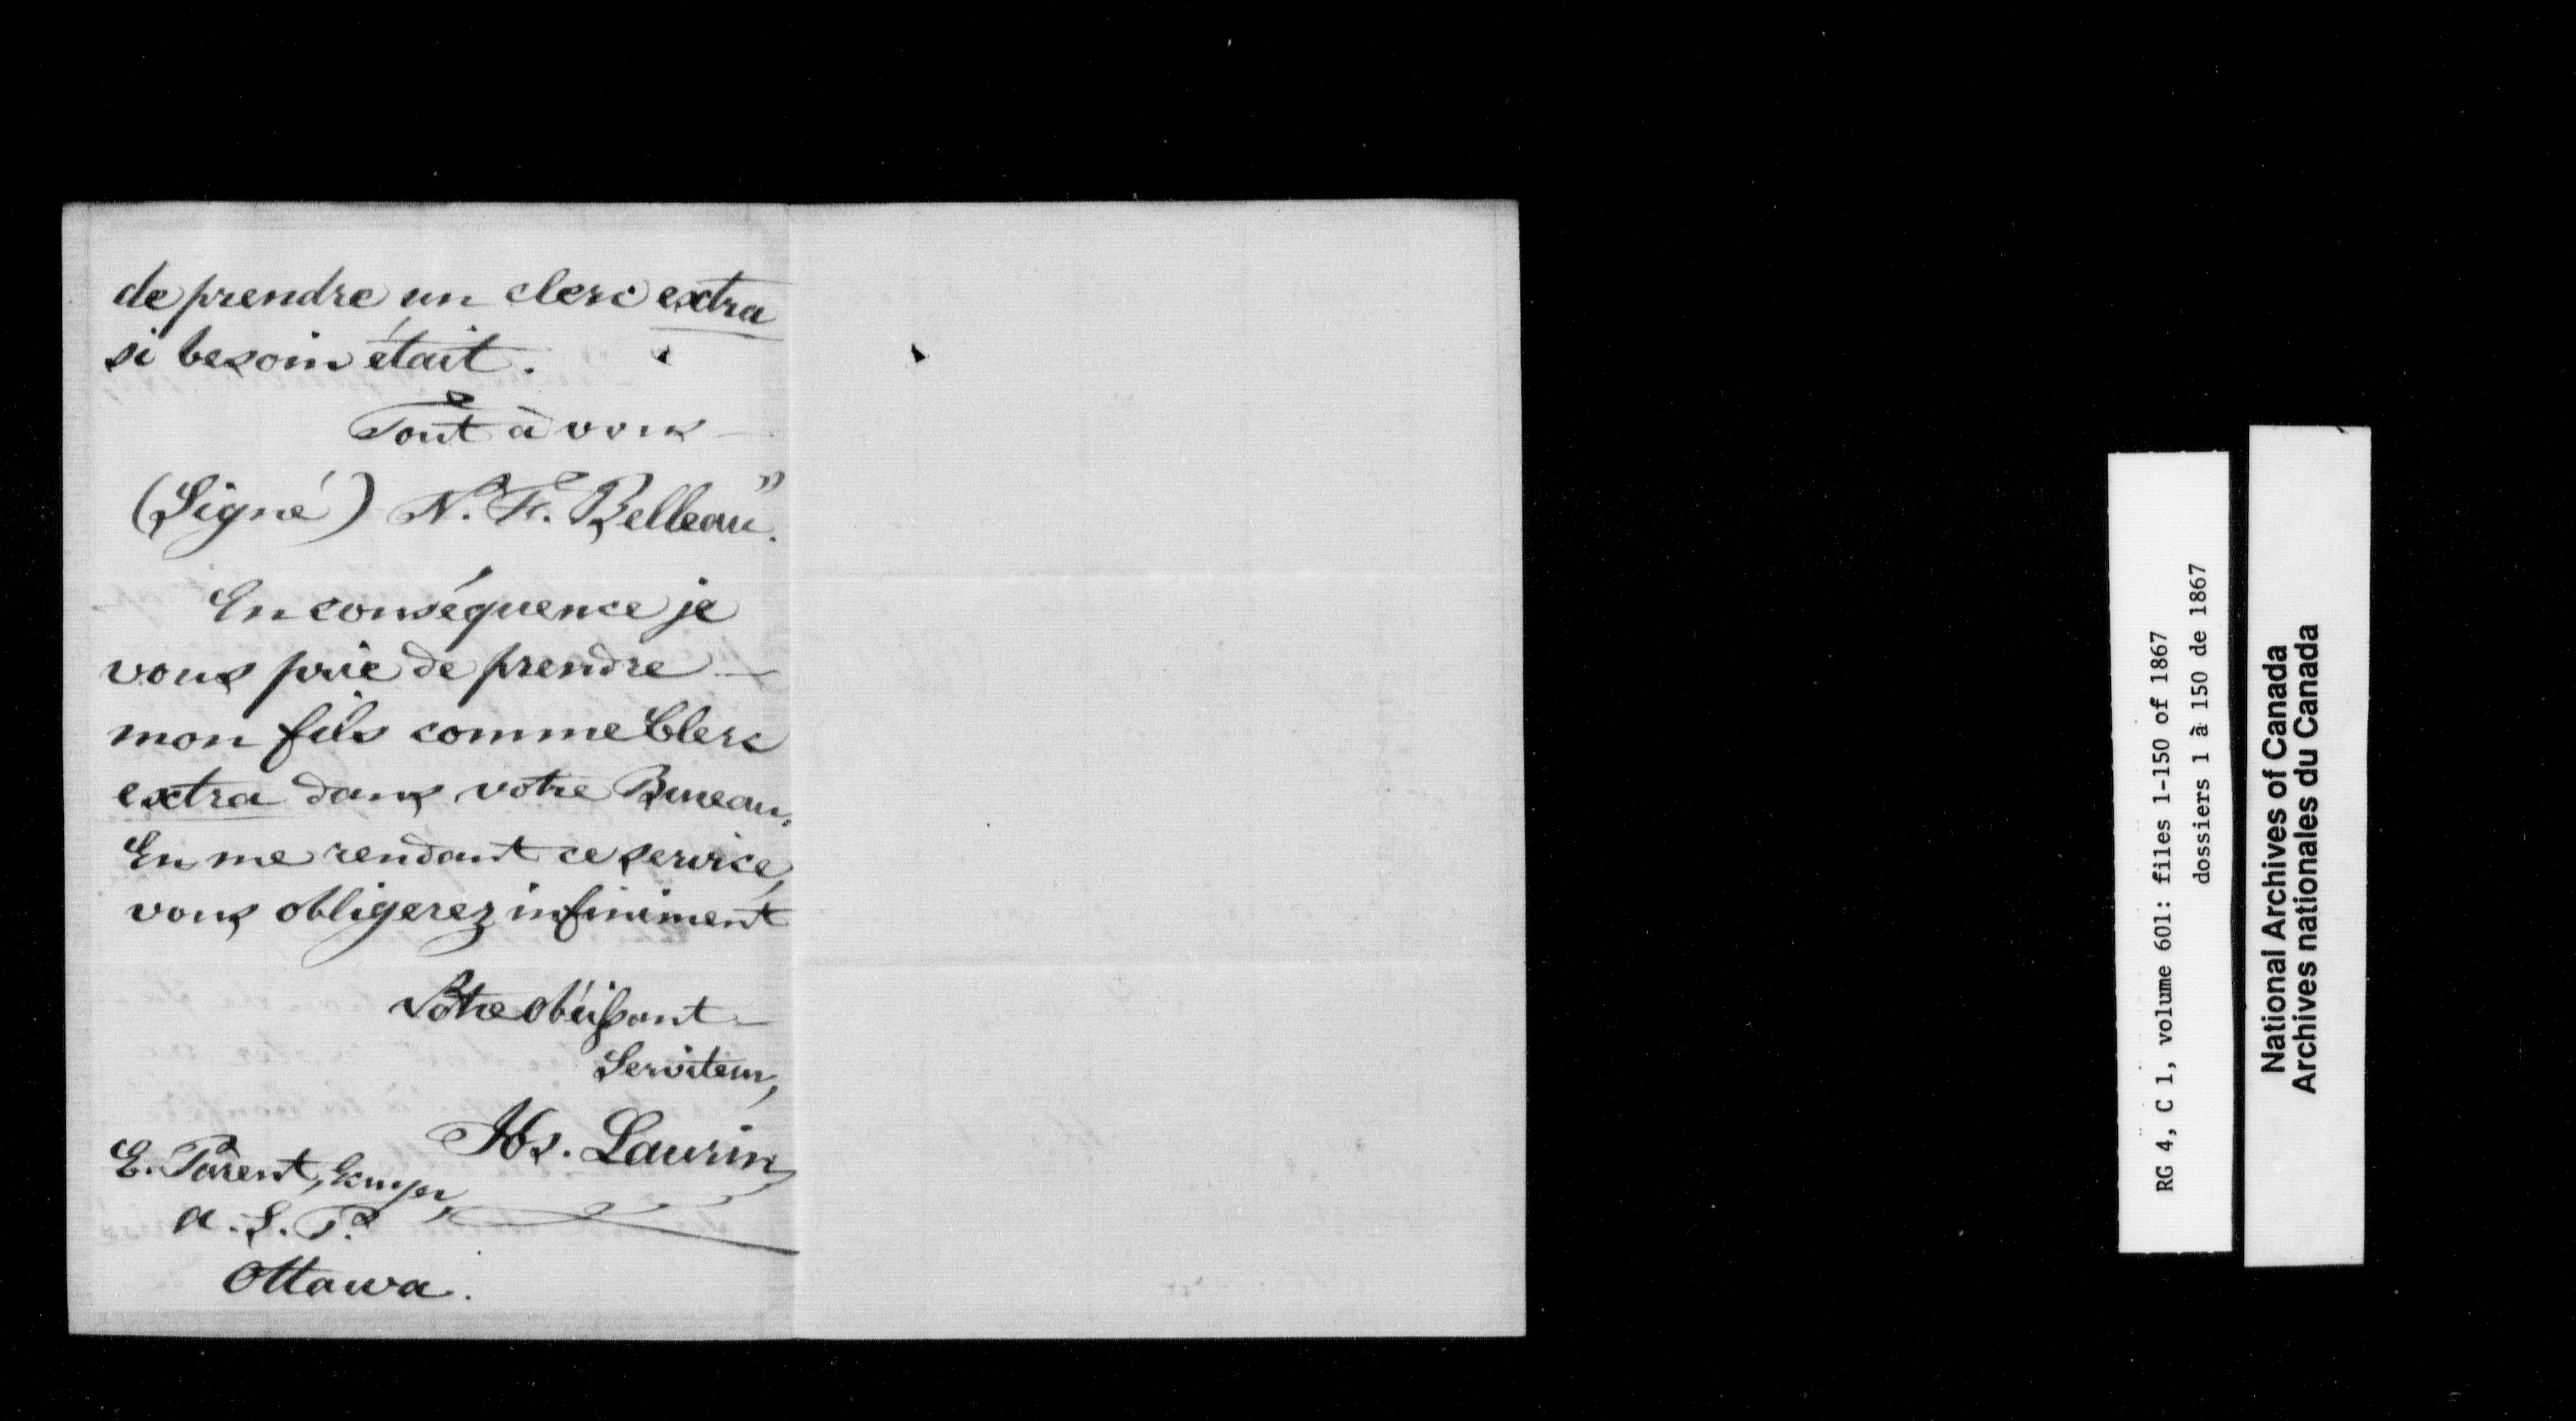 de prendre un clerc extra
si besoin était.
Tout à vous —
(Signé) N. F. Belleau."
En conséquence je
vous prie de prendre —
mon fils comme Clerc
extra dans votre Bureau,
En me rendant ce service,
vous obligerez infiniment
Votre obéissant —
Serviteur,
Jos. Laurin
E. Parent,
A. S. P.
Ottawa.
RG 4, C 1, volume 601: files 1-150 of 1867
dossiers 1 à 150 de 1867
National Archives of Canada
Archives nationales du Canada